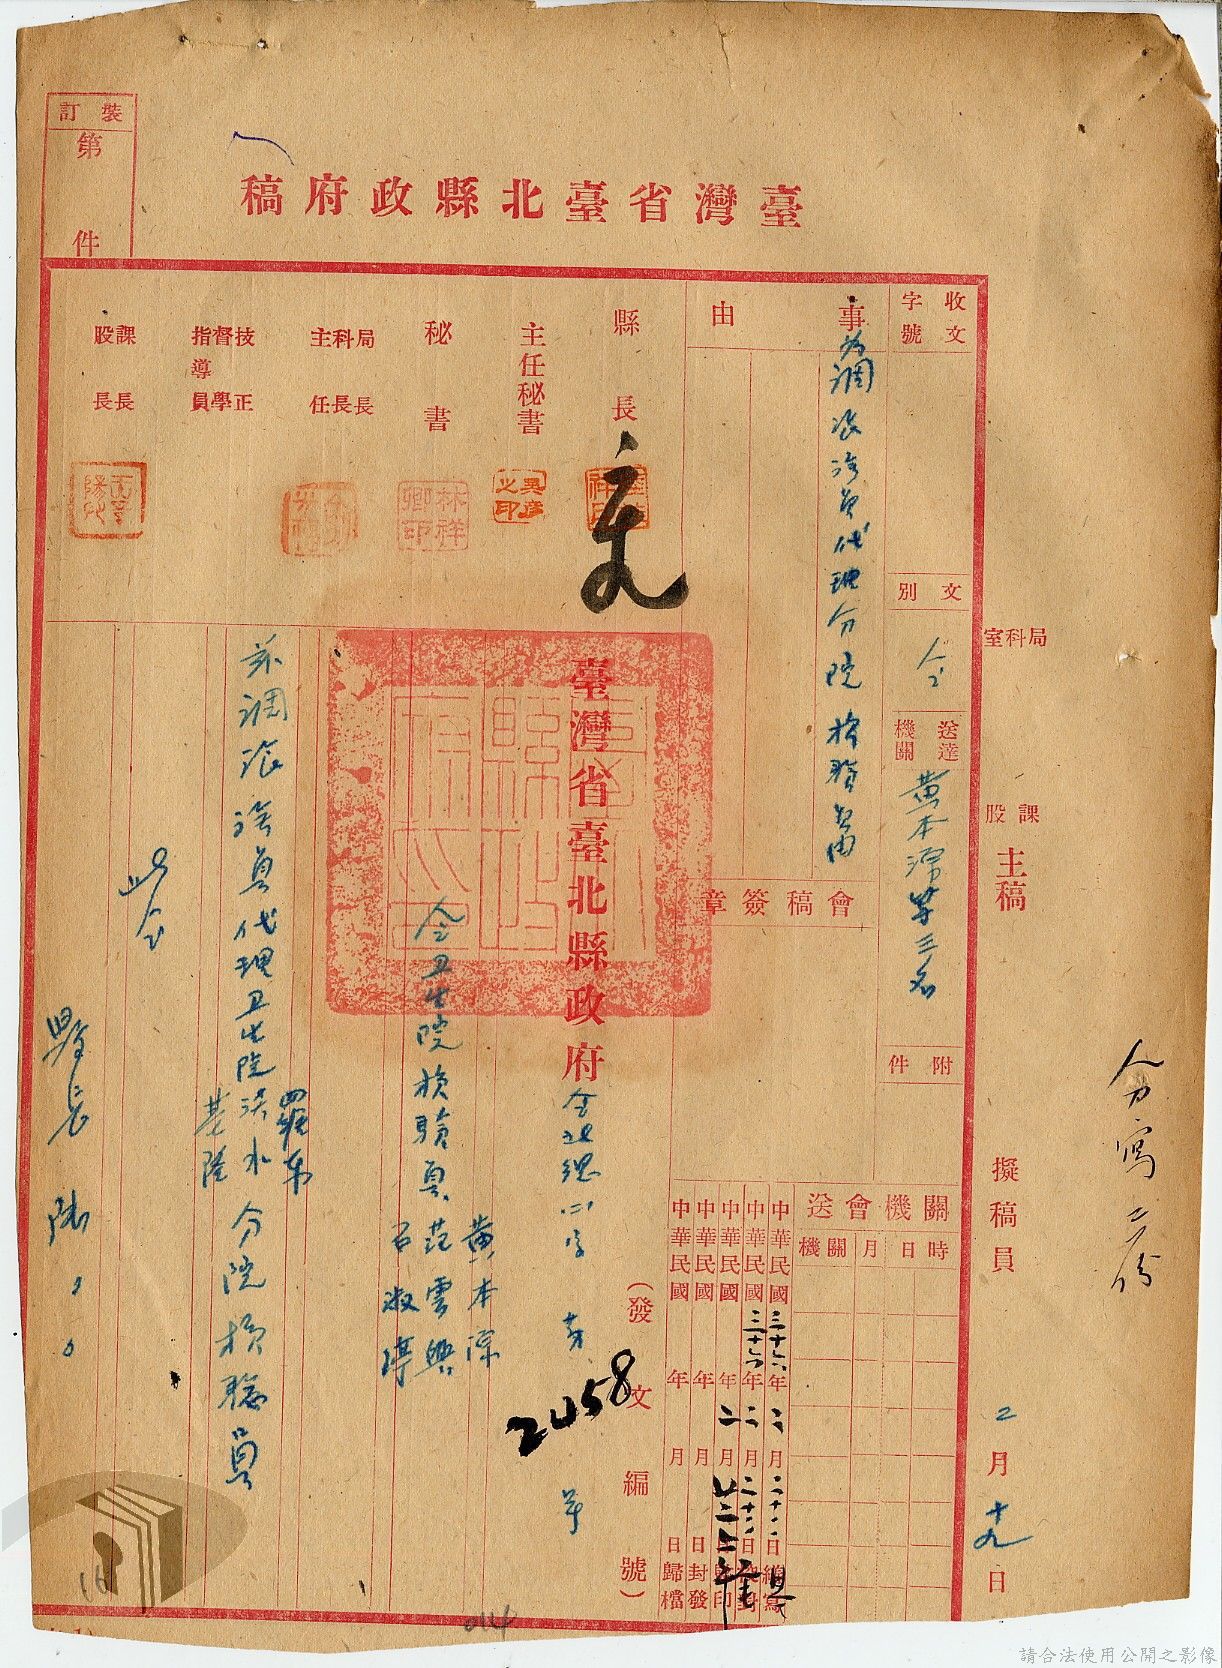 裝訂
第　件
臺灣省臺北縣政府稿
收文
字號
文別
令
送達
機關
黃本源等三名
附件
事由
為調派該員代理分院檢驗員由
會稿簽章
關機會送
時
日
月
機關
縣長
主任秘書
秘書
局長
科長
主任
技正
督學
指導員
課長
股長
林祥卿印
吳彥之印
局科室
課股
主稿
擬稿員
2月十九日
分寫三份
中華民國三十六年二月二十一日繕寫
中華民國三十六年二月二十二日校對
中華民國年二月廿二日蓋印
中華民國年月日封發
中華民國年月日歸檔
(發文編號)
臺灣省臺北縣政府
令
北總
字
第
2458
號
令卫生院檢驗員
黃本源
范雲興
石淑
茲調派該員代理卫生院
羅東
淡水
基隆
分院檢驗員
此令
縣長 陸
014
16
請合法使用公開之影像